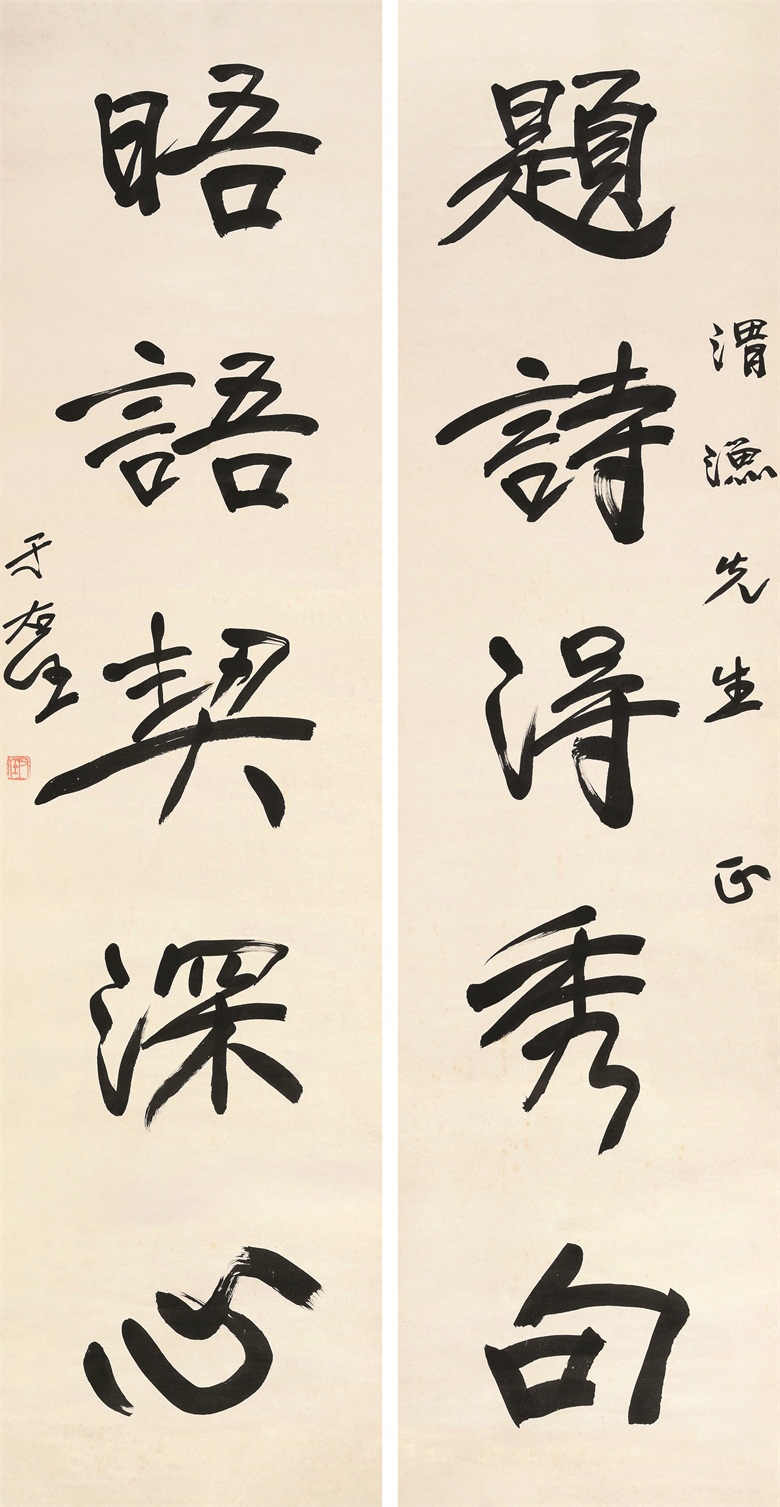 渭漁先生 正
題詩得秀句
晤語契深心
于右任